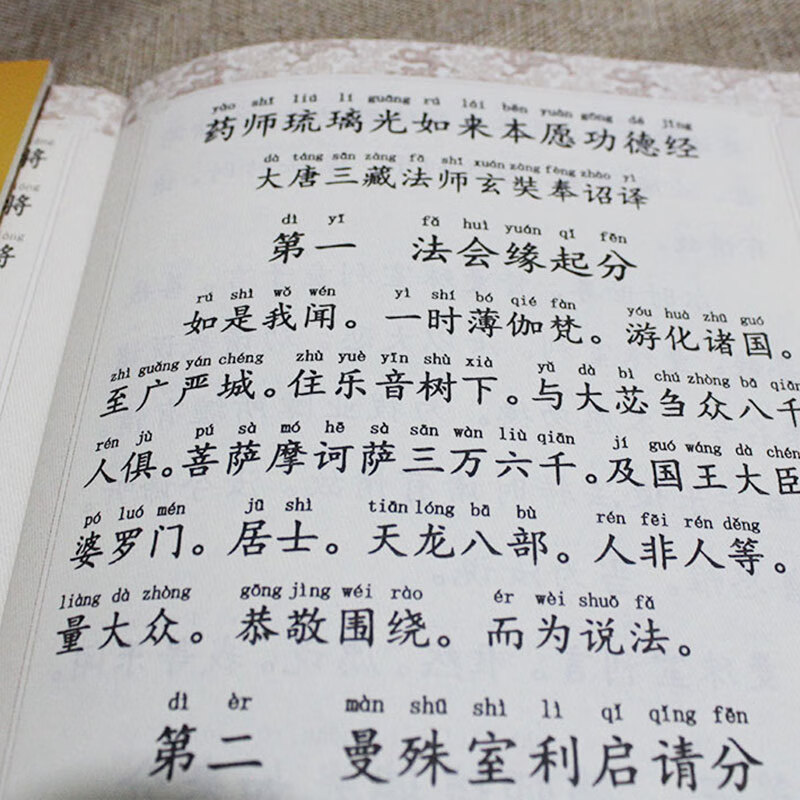 yào shī liú lí guāng rú lái běn yuàn gōng dé jīng
药师琉璃光如来本愿功德经
dà táng sān zàng fǎ shī xuán zàng fèng zhào yì
大唐三藏法师玄奘奉诏译
dì yī fǎ huì yuán qǐ fēn
第一 法会缘起分
rú shì wǒ wén yì shí bó qié fàn yóu huà zhū guó
如是我闻。一时薄伽梵。游化诸国。
zhì guǎng yán chéng zhù yuè yīn shù xià yǔ dà bì chú zhòng bā qiān
至广严城。住乐音树下。与大苾刍众八千
rén jù pú sà mó hē sà sān wàn liù qiān jí guó wáng dà chén
人俱。菩萨摩诃萨三万六千。及国王大臣
pó luó mén jū shì tiān lóng bā bù rén fēi rén děng
婆罗门。居士。天龙八部。人非人等。
liàng dà zhòng gōng jìng wéi rào ér wèi shuō fǎ
量大众。恭敬围绕。而为说法。
dì èr màn shū shì lì qǐ qǐng fēn
第二 曼殊室利启请分